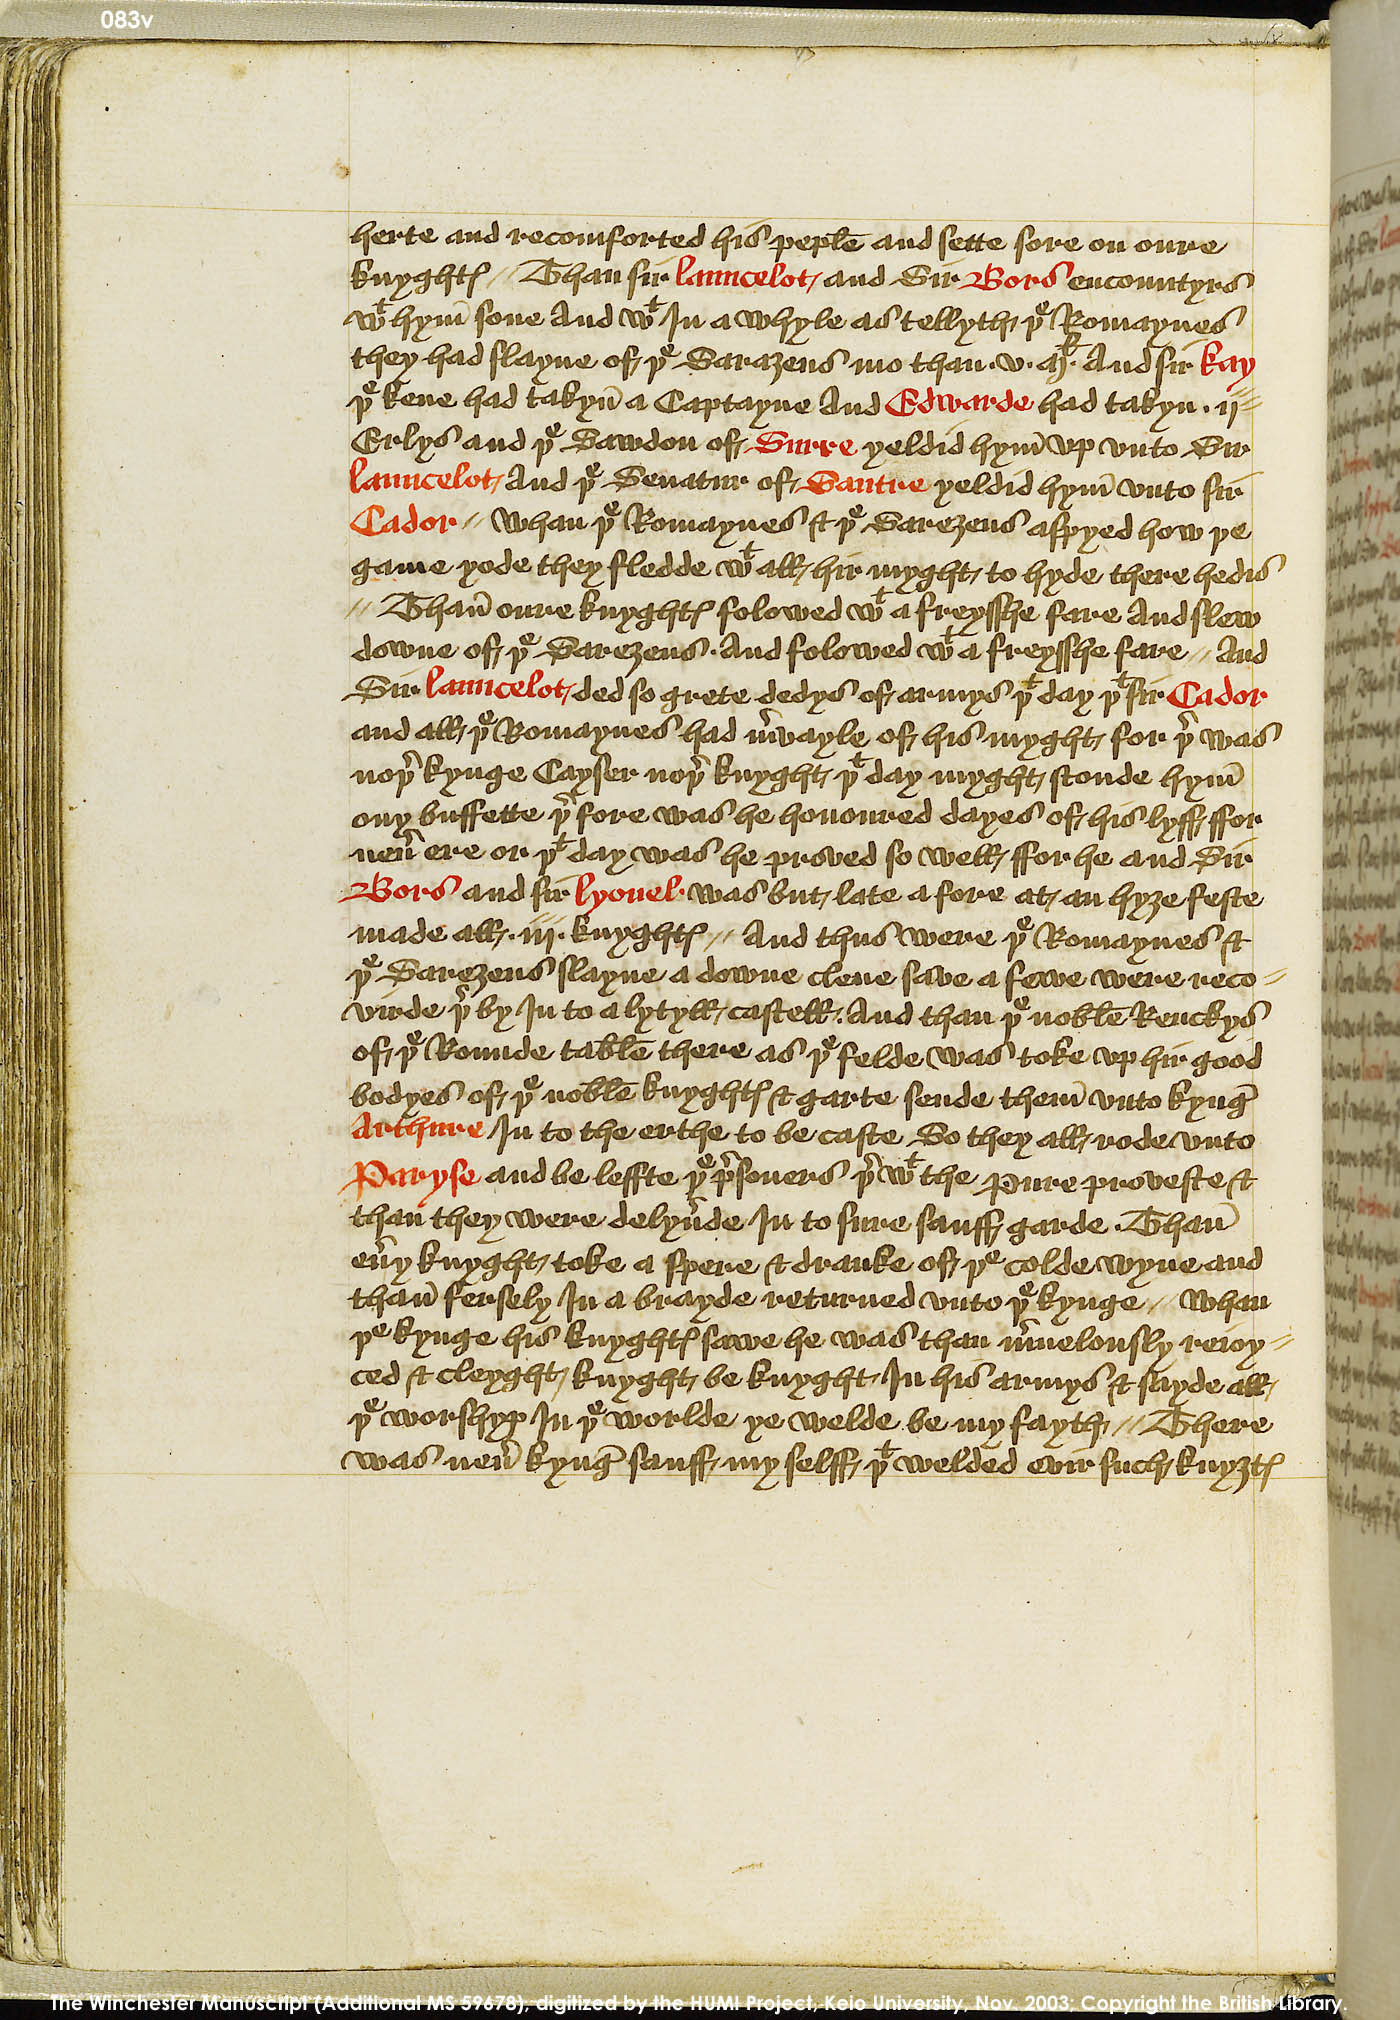 083v
herte and recomforted his peple and sette sore on oure
knyghtꝭ // Than sir launcelot and Sir Bors encountyrs
wᵗ hym̄ sone And wᵗ In a whyle as tellyth þᵉ Romaynes
they had slayne of þᵉ Sarazens mo than .v. Mˡ. And sir kay
þᵉ kene had takyn̄ a Captayne And Edwarde had takyn .ij
Erlys and þᵉ Sawdon of Surre yeldid hym̄ vp vnto Sir
launcelot And þᵉ Senatur of Sautre yeldid hym̄ vnto sir
Cador // Whan þᵉ Romaynes & þᵉ Sarezens aspyed how þe
game yode they fledde wᵗ all hir myght to hyde there hedis
// Than̄ oure knyghtꝭ folowed wᵗ a freysshe fare And slew
downe of þᵉ Sarezens. And folowed wᵗ a freysshe fare // And
Sir launcelot ded so grete dedys of armys þᵗ day þᵗ sir Cador
and all þᵉ Romaynes had m̉vayle of his myght for þ̉ was
noþ̉ kynge Cayser noþ̉ knyght þᵗ day myght stonde hym̄
ony buffette þ̉fore was he honoured dayes of his lyff ffor
neủ ere or þᵗ day was he proved so well ffor he and Sir
Bors and sir lyonel was but late a fore at an hyze feste
made all .iij. knyghtꝭ // And thus were þᵉ Romaynes &
þᵉ Sarezens slayne a downe clene save a fewe were reco=
virde þ̉ by In to a lytyll castell. And than þᵉ noble Renckys
of þᵉ Rounde table there as þᵉ felde was toke vp hir good
bodyes of þᵉ noble knyghtꝭ & garte sende them̄ vnto kyng
Arthure In to the erthe to be caste So they all rode vnto
Paryse and be leffte þᵉ p̉soners þ̉ wᵗ the Pure proveste &
than they were delyủde In to sure sauff garde. Than̄
eủy knyght toke a spere & dranke of þᵉ colde wyne and
than̄ fersely In a brayde returned vnto þᵉ kynge // Whan
þᵉ kynge his knyghtꝭ sawe he was than m̉uelously reioy=
ced & cleyght knyght be knyght In his armys & sayde all
þᵉ worshyp In þᵉ worlde ye welde be my fayth // There
was neủ kyng sauff my selff þᵗ welded evir such knyztꝭ
The Winchester Manuscript (Additional MS 59678), digitized by the HUMI Project, Keio University, Nov. 2003; Copyright the British Library.